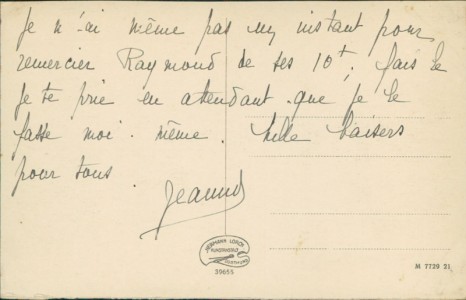 Je n'ai même pas un instant pour
remercier Raymond de ses 10t; fais le
je te prie en attendant que je le
fasse moi-même. Mille baisers
pour tous.
Jeanne
HERMANN LORCH
KUNSTANSTALT
DORTMUND
39655
M 7729 21